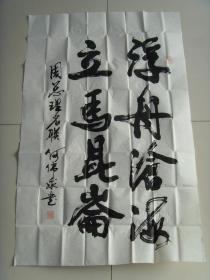 浮舟沧海
立马昆崙
周总理名联 何伟泉书